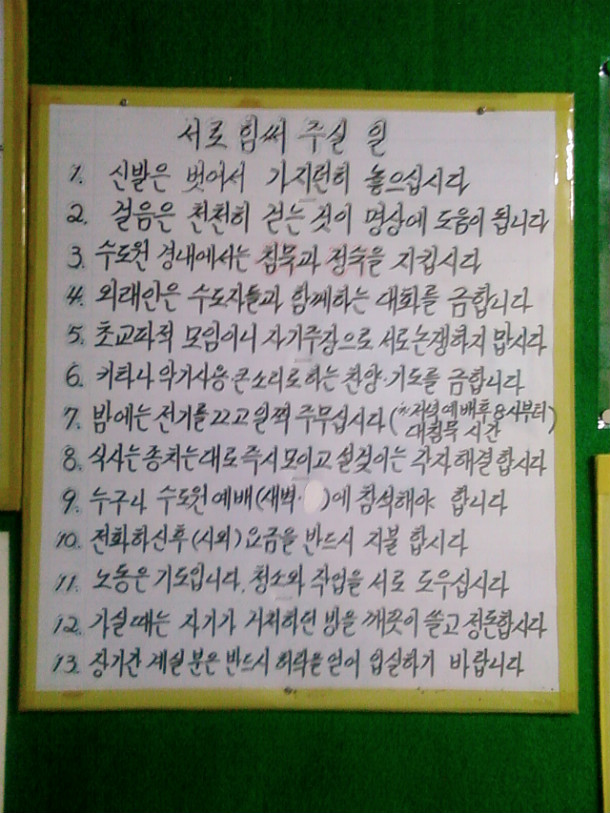 서로 힘써 주실 일
1. 신발은 벗어서 가지런히 놓으십시다
2. 걸음은 천천히 걷는 것이 명상에 도움이 됩니다
3. 수도원 경내에서는 침묵과 정숙을 지킵시다
4. 외래인은 수도자들과 함께하는 대화를 금합니다
5. 초교파적 모임이니 자기주장으로 서로 논쟁하지 맙시다
6. 키타나 악기사용·큰소리로 하는 찬양·기도를 금합니다
7. 밤에는 전기를 끄고 일찍 주무십시다 (※저녁예배후 8시부터
대침묵 시간)
8. 식사는 종치는대로 즉시 모이고 설겆이는 각자 해결합시다
9. 누구나 수도원 예배(새벽· )에 참석해야 합니다
10. 전화하신후(시외)요금을 반드시 지불 합시다
11. 노동은 기도입니다. 청소와 작업을 서로 도우십시다
12. 가실때는 자기가 거처하던 방을 깨끗이 쓸고 정돈합시다
13. 장기간 계실분은 반드시 허락을 얻어 입실하기 바랍니다